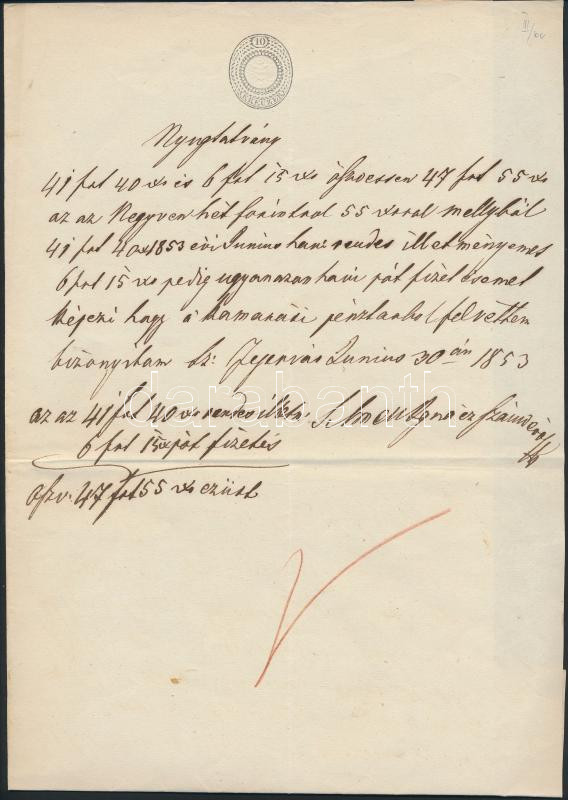 III/60
10
KREUZER
Nyugtatvány
41 frt 40 xr és 6 frt 15 xr öszvessen 47 frt 55 xr
az az Negyven hét forintrol 55 xorrol mellyből
41 frt 40 x 1853 évi Junius havi rendes illetményemet
6 frt 15 xr pedig ugyanazon havi pót fizetésemet
képezi hogy a kamarási pénztarbol felvettem
bizonyitom Sz: Junius 30 án 1853
az az 41 frt 40 xr rendes illetm Ignácz
6 frt 15 x pót fizetés
öszv: 47 frt 55 xr ezüst
darabanth